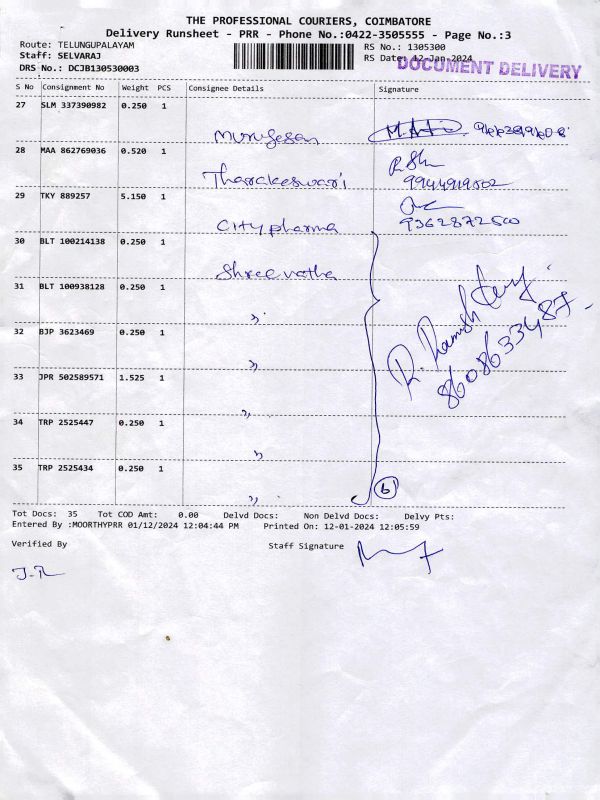 THE PROFESSIONAL COURIERS, COIMBATORE
Delivery Runsheet - PRR - Phone No.:0422-3505555 - Page No.:3
Route: TELUNGUPALAYAM
RS No.: 1305300
Staff: SELVARAJ
RS Date: 12-Jan-2024
DOCUMENT DELIVERY
DRS No.: DCJB130530003
S No Consignment No Weight PCS Consignee Details Signature
27 SLM 337390982 0.250 1
Murugesan
28 MAA 862769036 0.520 1
Tharakeswari 9944919802
29 TKY 889257 5.150 1
City pharma 9362872500
30 BLT 100214138 0.250 1
Shree vatha
31 BLT 100938128 0.250 1
"
32 BJP 3623469 0.250 1
"
33 JPR 502589571 1.525 1
"
34 TRP 2525447 0.250 1
"
35 TRP 2525434 0.250 1
"
8608633487
6
Tot Docs: 35 Tot COD Amt: 0.00 Delvd Docs: Non Delvd Docs: Delvy Pts:
Entered By :MOORTHYPRR 01/12/2024 12:04:44 PM Printed On: 12-01-2024 12:05:59
Verified By Staff Signature